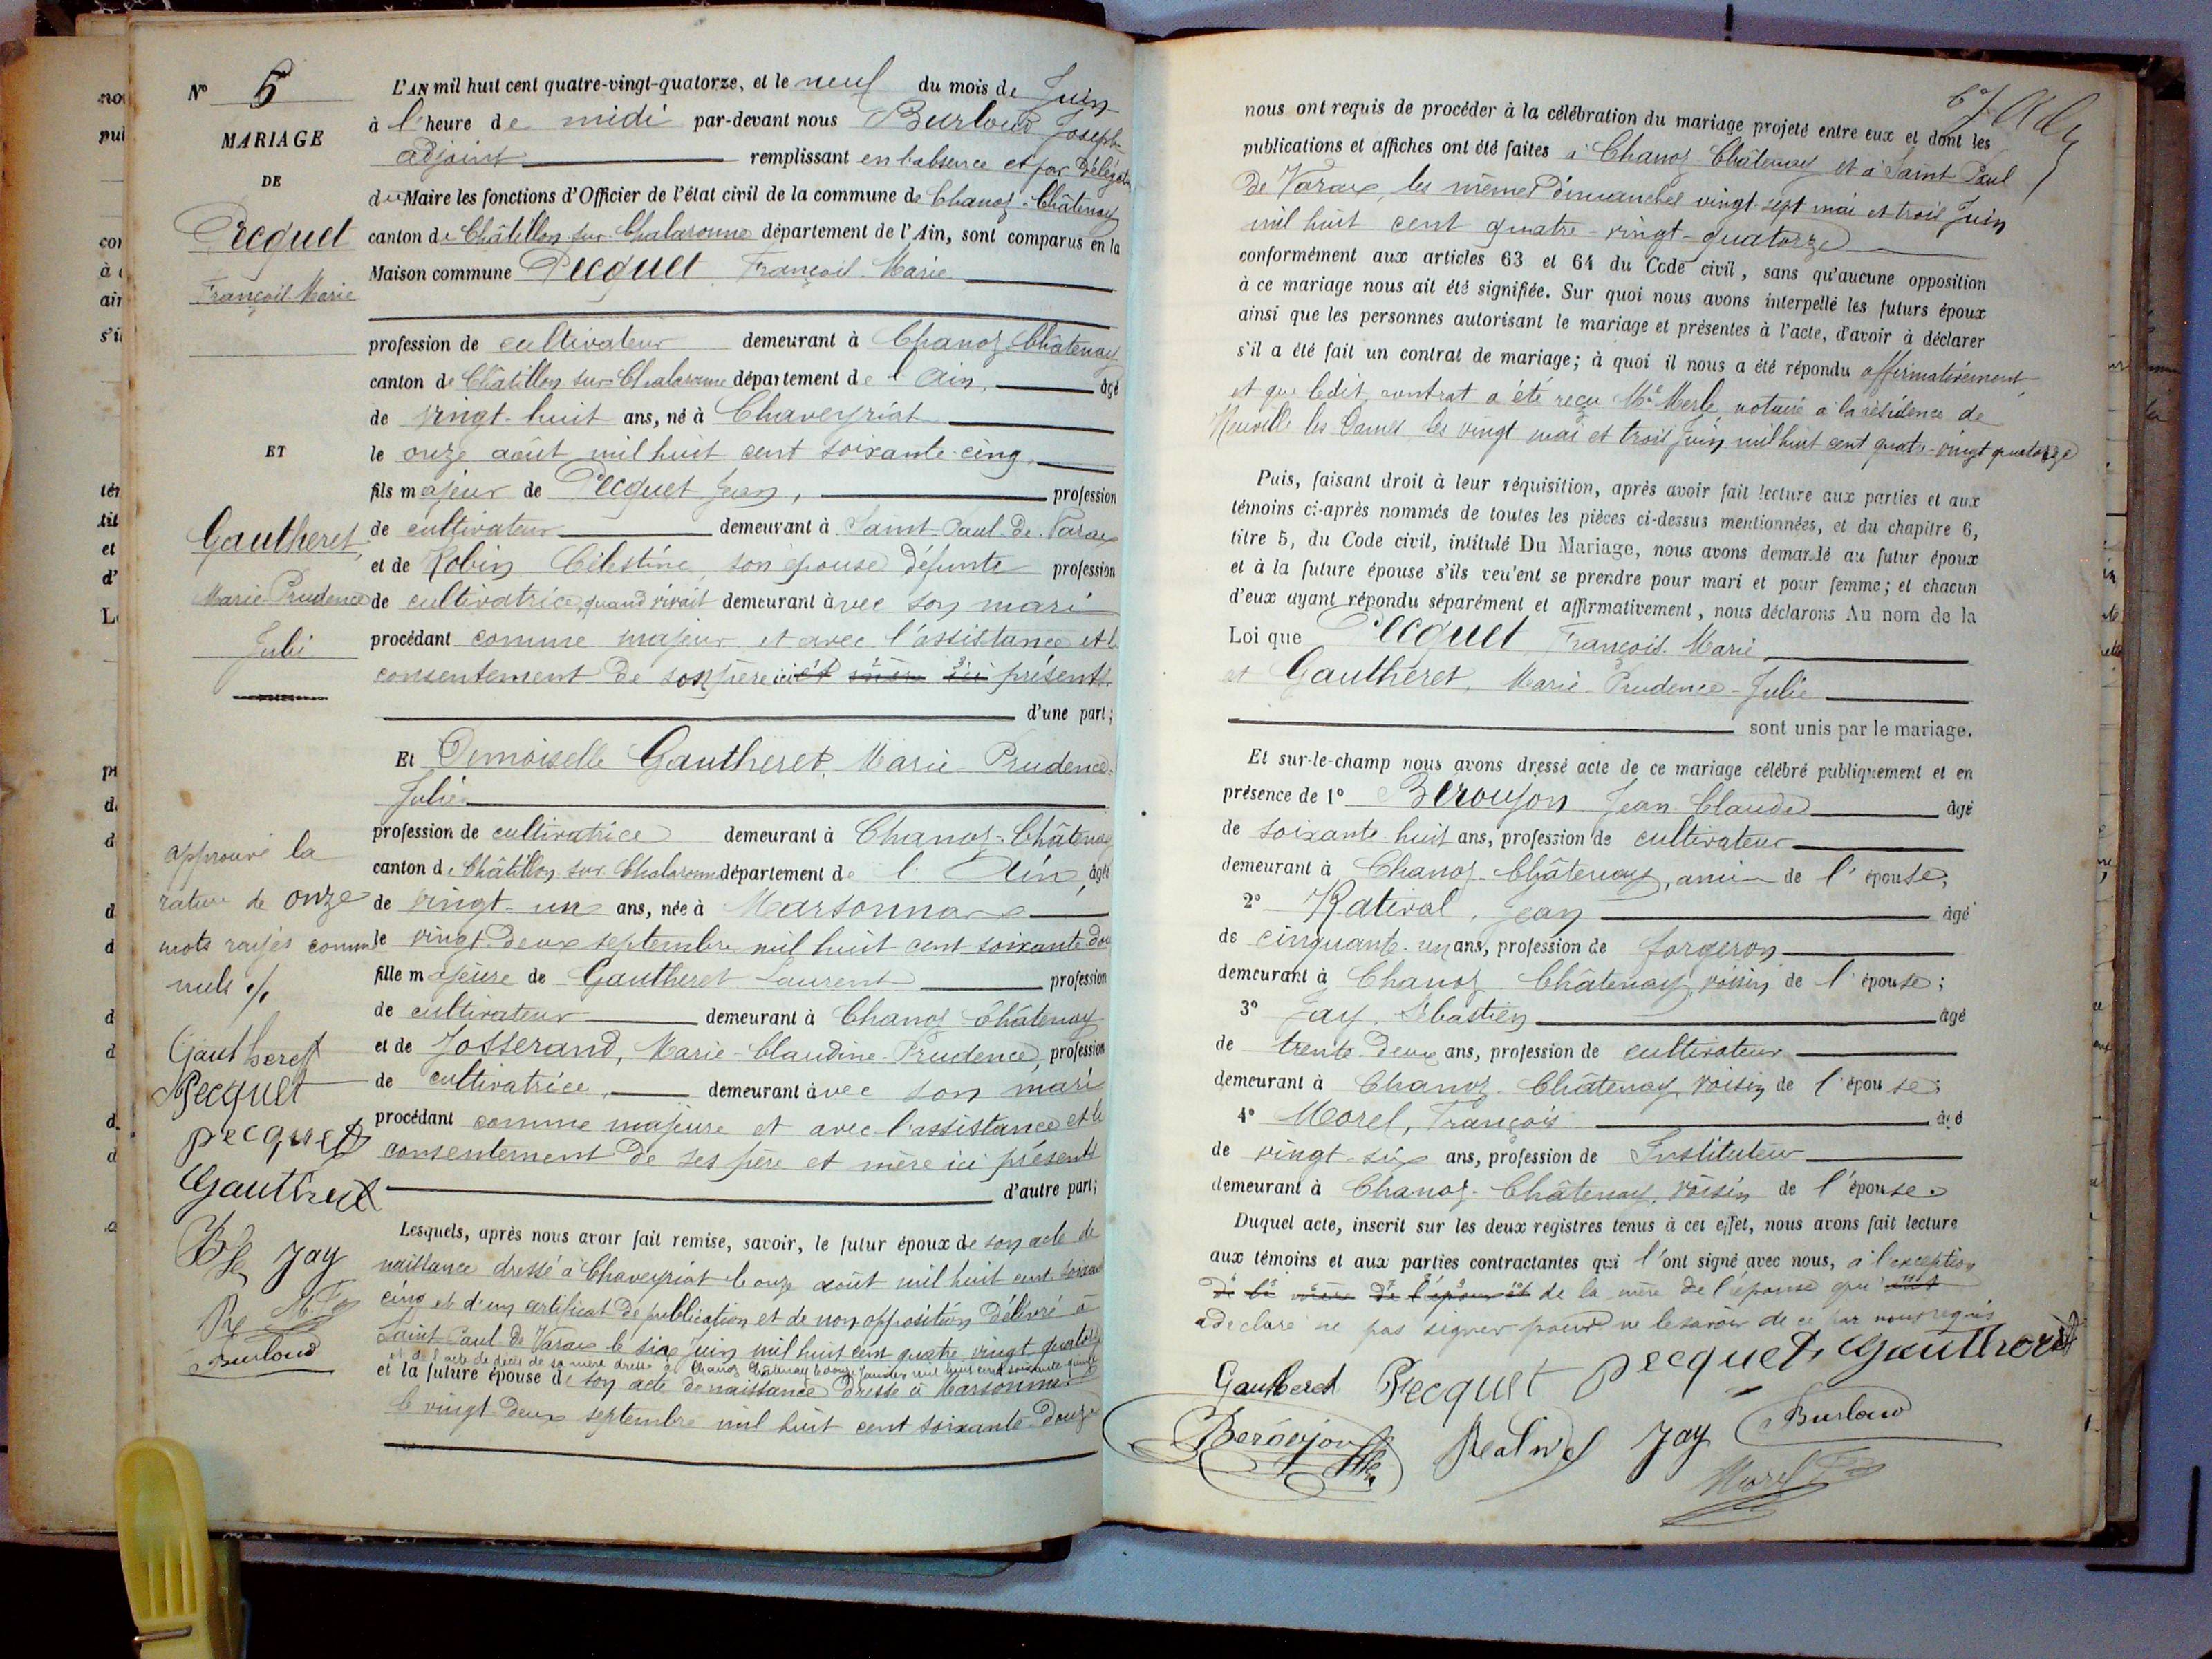 N° 5
MARIAGE
DE
Pecquet
François-Marie
ET
Gautheret,
Marie-Prudence
Julie
approuvé la
rature de onze
mots rayés comme
nuls ./.
Gautheret
Pecquet
pecquet
Gautheret
Jay
Burloud
L'AN mil huit cent quatre-vingt-quatorze, et le neuf du mois de Juin
à l'heure de midi par-devant nous Burloud Joseph
adjoint remplissant en l'absence et par délégation
du Maire les fonctions d'Officier de l'état civil de la commune de Chanoz-Châtenay
canton de Châtillon sur Chalaronne département de l'Ain, sont comparus en la
Maison commune Pecquet, François-Marie
profession de cultivateur demeurant à Chanoz Châtenay
canton de Châtillon sur Chalaronne département de l'Ain, âgé
de vingt-huit ans, né à Chaveyriat
le onze août mil huit cent soixante-cinq,
fils majeur de Pecquet Jean, profession
de cultivateur demeurant à Saint-Paul-de-Varax
et de Robin Célestine, son épouse défunte profession
de cultivatrice, quand vivait demeurant avec son mari
procédant comme majeur et avec l'assistance et le
consentement de son père ici et mère ici présents.
d'une part;
Et Demoiselle Gautheret, Marie-Prudence-
Julie
profession de cultivatrice demeurant à Chanoz-Châtenay
canton de Châtillon sur Chalaronne département de l'Ain, âgée
de vingt-un ans, née à Marsonnas
le vingt-deux septembre mil huit cent soixante-dou
fille majeure de Gautheret Laurent profession
de cultivateur demeurant à Chanoz-Châtenay
et de Josserand, Marie-Claudine-Prudence, profession
de cultivatrice, demeurant avec son mari
procédant comme majeure et avec l'assistance et le
consentement de ses père et mère ici présents
d'autre part;
Lesquels, après nous avoir fait remise, savoir, le futur époux de son acte de
naissance dressé à Chaveyriat le onze août mil huit cent soixante
cinq et d'un certificat de publication et de non opposition délivré à
Saint-Paul de Varax le six Juin mil huit cent quatre vingt quatorze
et de l'acte de décès de sa mère dressé à Chanoz Châtenay le douze Janvier mil huit cent soixante
et la future épouse de son acte de naissance dressé à Marsonnas
le vingt-deux septembre mil huit cent soixante-douze
nous ont requis de procéder à la célébration du mariage projeté entre eux et dont les
publications et affiches ont été faites à Chanoz-Châtenay et à Saint Paul
de Varax, les mêmes dimanches vingt-sept mai et trois Juin
mil huit cent quatre-vingt-quatorze
conformément aux articles 63 et 64 du Code civil, sans qu'aucune opposition
à ce mariage nous ait été signifiée. Sur quoi nous avons interpellé les futurs époux
ainsi que les personnes autorisant le mariage et présentes à l'acte, d'avoir à déclarer
s'il a été fait un contrat de mariage; à quoi il nous a été répondu affirmativement,
et que ledit contrat a été reçu Me Merle, notaire à la résidence de
Neuville les Dames, les vingt mai et trois Juin mil huit cent quatre-vingt quatorze
Puis, faisant droit à leur réquisition, après avoir fait lecture aux parties et aux
témoins ci-après nommés de toutes les pièces ci-dessus mentionnées, et du chapitre 6,
titre 5, du Code civil, intitulé Du Mariage, nous avons demandé au futur époux
et à la future épouse s'ils veulent se prendre pour mari et pour femme; et chacun
d'eux ayant répondu séparément et affirmativement, nous déclarons Au nom de la
Loi que Pecquet, François-Marie
et Gautheret, Marie-Prudence-Julie
sont unis par le mariage.
Et sur-le-champ nous avons dressé acte de ce mariage célébré publiquement et en
présence de 1° Beroujon Jean-Claude âgé
de soixante-huit ans, profession de cultivateur
demeurant à Chanoz-Châtenay, ami de l'épouse;
2° Ratival, Jean âgé
de cinquante-un ans, profession de forgeron
demeurant à Chanoz Châtenay, voisin de l'épouse;
3° Jay, Sébastien âgé
de trente-deux ans, profession de cultivateur
demeurant à Chanoz-Châtenay, voisin de l'épouse;
4° Morel, François âgé
de vingt-six ans, profession de Instituteur
demeurant à Chanoz-Châtenay, voisin de l'épouse.
Duquel acte, inscrit sur les deux registres tenus à cet effet, nous avons fait lecture
aux témoins et aux parties contractantes qui l'ont signé avec nous, à l'exception
de la mère de l'époux et de la mère de l'épouse qui ont
a déclaré ne pas signer pour ne le savoir de ce par nous requis
Gautheret Pecquet pecquet, Gautheret
Beroujon Jay Burloud
Morel